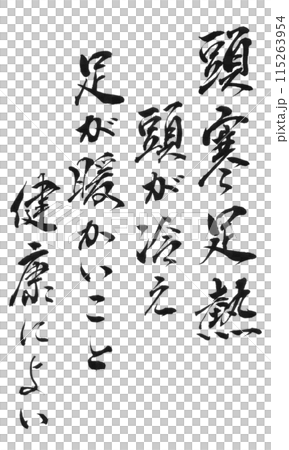 頭寒足熱
頭が冷え
足が暖かいこと
健康によい
115263954